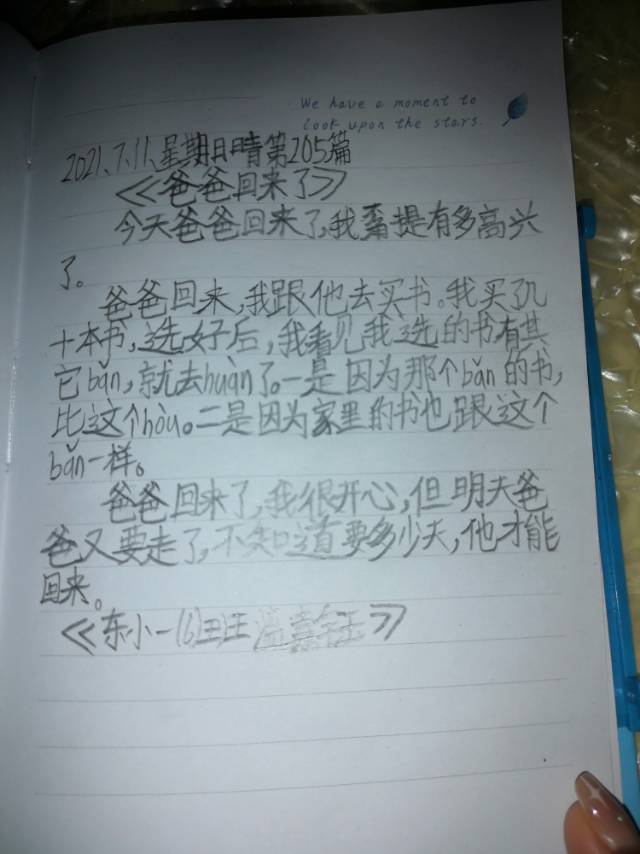 We have a moment to
look upon the stars.
2021.7.11.星期日晴第205篇
《爸爸回来了》
今天爸爸回来了,我甭提有多高兴
了。
爸爸回来,我跟他去买书。我买了几
十本书,选好后,我看见我选的书有其
它bǎn,就去huàn了。一是因为那个bǎn的书,
比这个hòu。二是因为家里的书也跟这个
bǎn一样。
爸爸回来了,我很开心,但明天爸
爸又要走了,不知道要多少天,他才能
回来。
《东小一(6)班